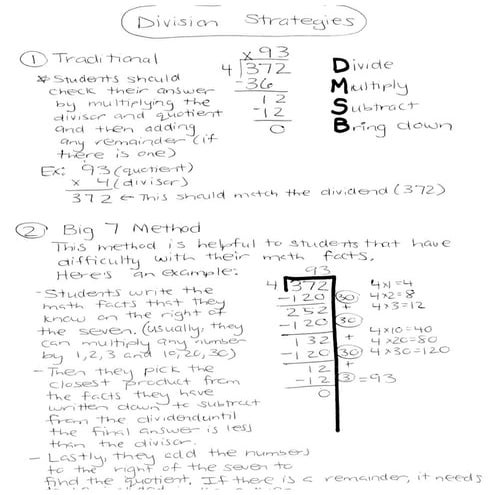 Division Strategies
① Traditional
* Students should
check their answer
by multiplying the
divisor and quotient
and then adding
any remainder (if
there is one)
x 93
4 372
-36
12
-12
0
Divide
Multiply
Subtract
Bring down
Ex: 93 (quotient)
x 4 (divisor)
372 ← This should match the dividend (372)
② Big 7 Method
This method is helpful to students that have
difficulty with their math facts.
Here's an example:
- Students write the
math facts that they
know on the right of
the seven. (usually, they
can multiply any number
by 1, 2, 3 and 10, 20, 30)
- Then they pick the
closest product from
the facts they have
written down to subtract
from the dividend until
the final answer is less
than the divisor.
93
4 372
-120 30
252 +
-120 30
132 +
-120 30
12 +
-12 3 = 93
0
4x1=4
4x2=8
4x3=12
4x10=40
4x20=80
4x30=120
- Lastly, they add the numbers
to the right of the seven to
find the quotient. If there is a remainder, it needs